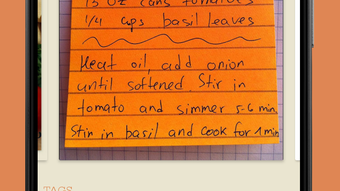 15 oz cans tomatoes
1/4 cups basil leaves
Heat oil, add onion
until softened. Stir in
tomato and simmer 5-6 min
Stir in basil and cook for 1 min
TAGS